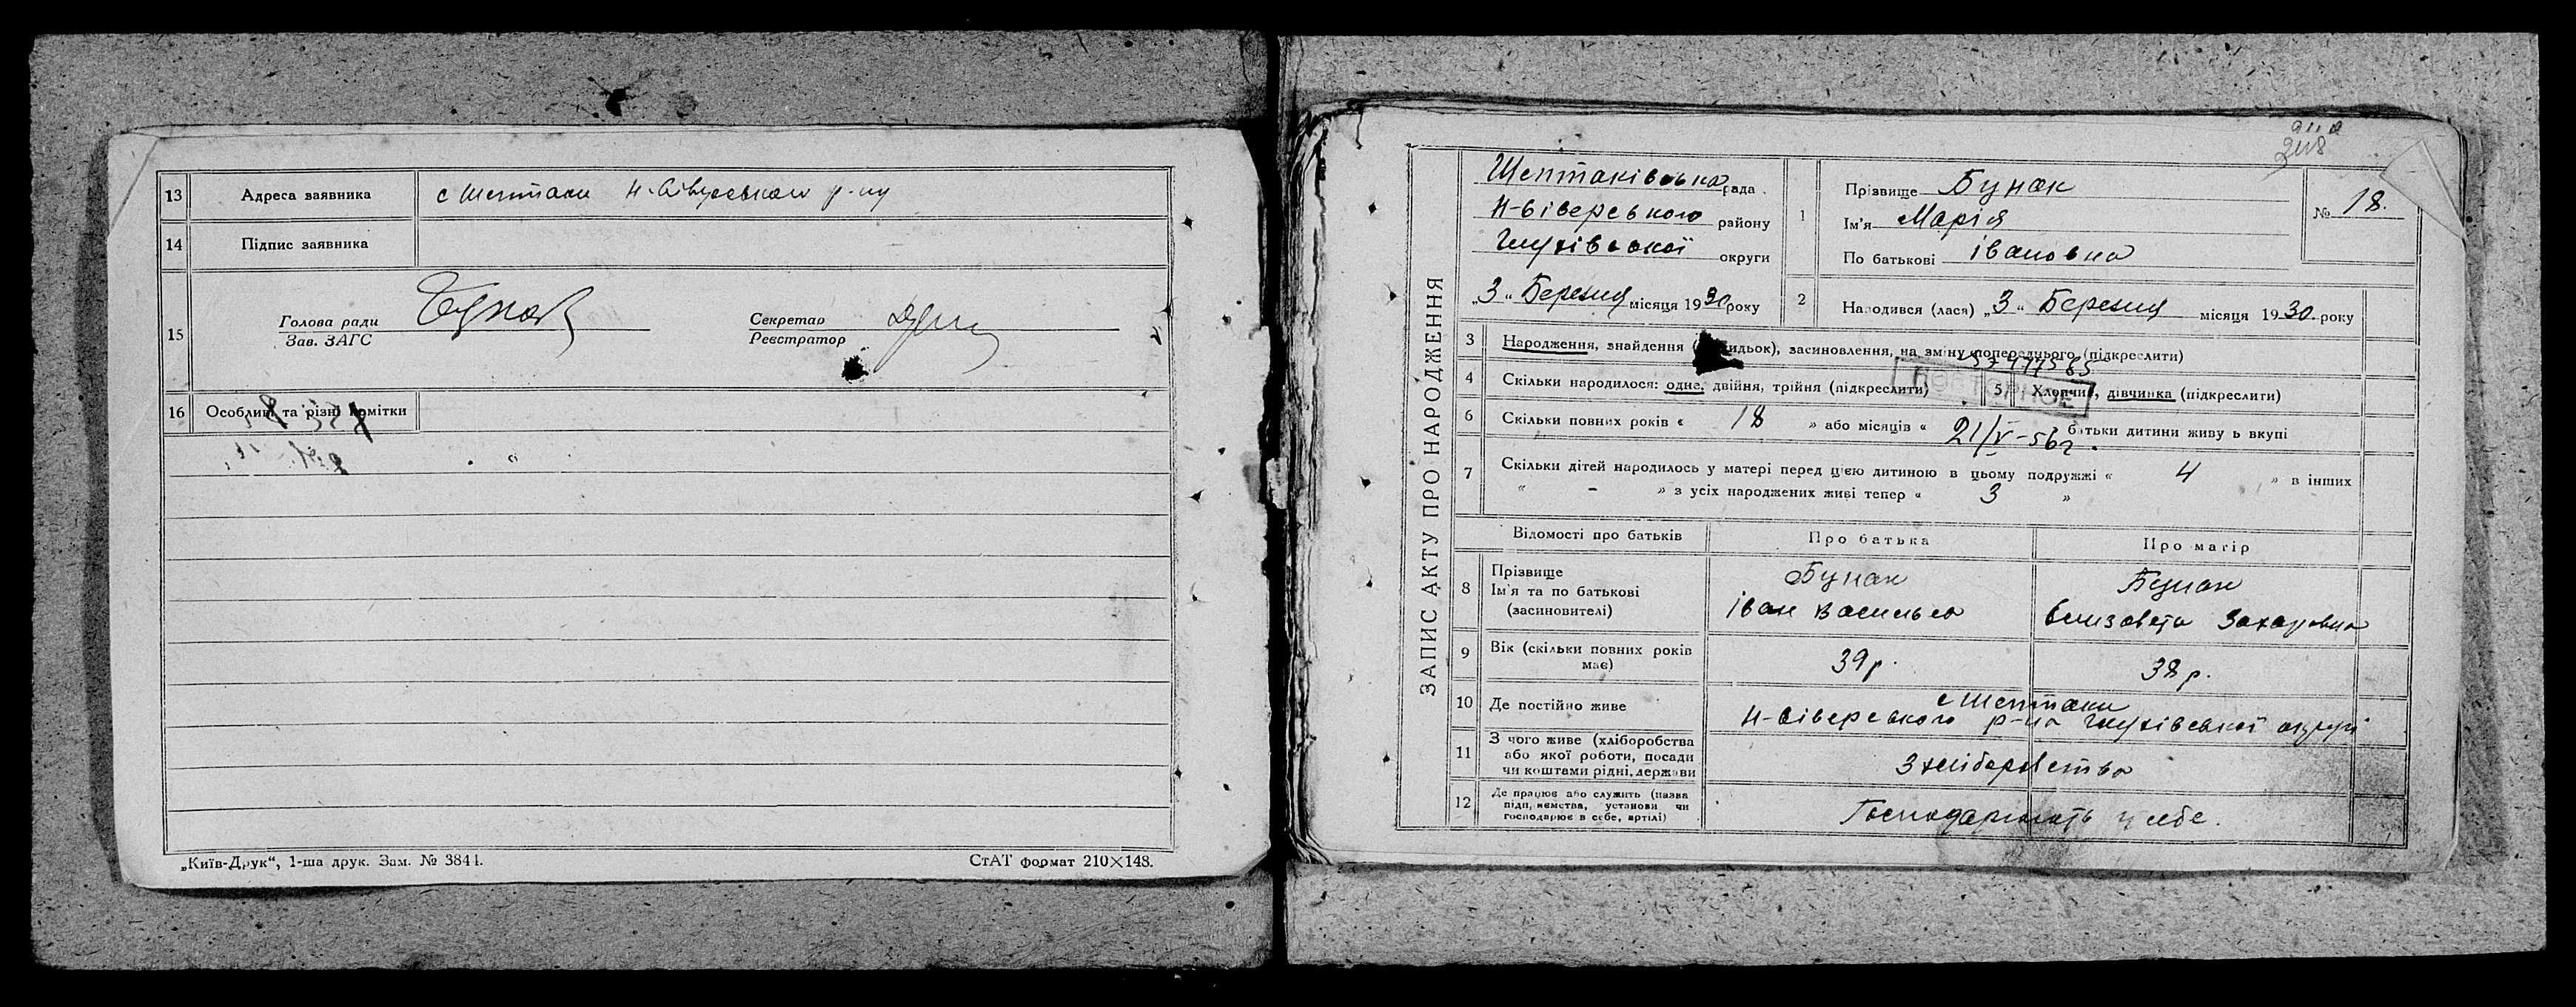 13 Адреса заявника с Шептаки Н-Сіверського р-ну
14 Підпис заявника
15 Голова ради
Зав. ЗАГС
Секретар
Реєстратор
16 Особливі та різні помітки
„Київ-Друк“, 1-ша друк. Зам. № 3844.
СтАТ формат 210×148.
ЗАПИС АКТУ ПРО НАРОДЖЕННЯ
Шептаківська рада
Н-Сіверського району
Глухівської округи
„3“ Березня місяця 1930 року
1 Прізвище Бунак
Ім'я Марія
По батькові Івановна
№ 18.
2 Народився (лася) „3“ Березня місяця 1930. року
3 Народження, знайдення ( идьок), засиновлення, на зміну попереднього (підкреслити)
4 Скільки народилося: одне, двійня, трійня (підкреслити)
5 Хлопчик, дівчинка (підкреслити)
ПОВТОРНОЕ
6 Скільки повних років « 18 » або місяців « батьки дитини живуть вкупі
21/V-56г.
7 Скільки дітей народилось у матері перед цією дитиною в цьому подружжі « 4 » в інших
« - » з усіх народжених живі тепер « 3 »
Відомості про батьків Про батька Про матір
8 Прізвище
Ім'я та по батькові
(засновителі)
Бунак
Іван Васильов
Бунак
Єлизавета Захаровна
9 Вік (скільки повних років
має)
39 р.
38 р.
10 Де постійно живе
с Шептаки
Н-Сіверського р-на Глухівської округи
11 З чого живе (хліборобства
або якої роботи, посади
чи коштами рідні, держави
З хліборобства
12 Де працює або служить (назва
підприємства, установи чи
господарює в себе, артілі)
Господарюють у себе.